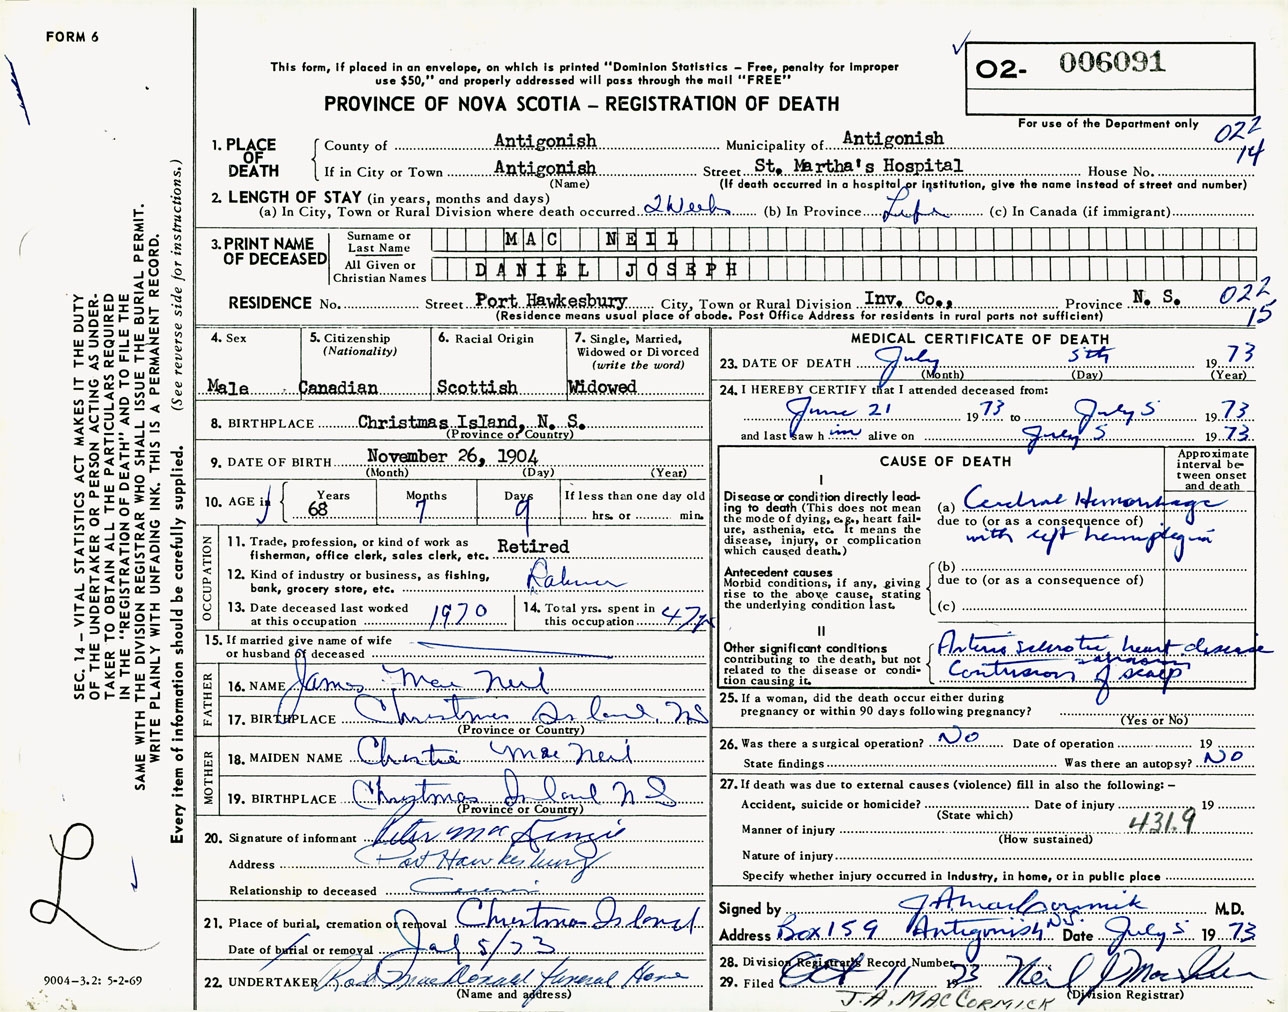 FORM 6
This form, if placed in an envelope, on which is printed "Dominion Statistics – Free, penalty for improper
use $50," and properly addressed will pass through the mail "FREE"
PROVINCE OF NOVA SCOTIA – REGISTRATION OF DEATH
02- 006091
For use of the Department only
022
14
1. PLACE OF DEATH
County of Antigonish Municipality of Antigonish
If in City or Town Antigonish Street St. Martha's Hospital House No.
(Name) (If death occurred in a hospital or institution, give the name instead of street and number)
2. LENGTH OF STAY (in years, months and days)
(a) In City, Town or Rural Division where death occurred 2 Weeks (b) In Province Life (c) In Canada (if immigrant)
3. PRINT NAME OF DECEASED
Surname or Last Name MAC NEIL
All Given or Christian Names DANIEL JOSEPH
RESIDENCE No. Street Port Hawkesbury City, Town or Rural Division Inv. Co., Province N. S. 022
(Residence means usual place of abode. Post Office Address for residents in rural parts not sufficient) 15
4. Sex
Male
5. Citizenship
(Nationality)
Canadian
6. Racial Origin
Scottish
7. Single, Married,
Widowed or Divorced
(write the word)
Widowed
8. BIRTHPLACE Christmas Island, N. S.
(Province or Country)
9. DATE OF BIRTH November 26, 1904
(Month) (Day) (Year)
10. AGE in Years Months Days If less than one day old
68 7 9 hrs. or min.
OCCUPATION
11. Trade, profession, or kind of work as
fisherman, office clerk, sales clerk, etc. Retired
12. Kind of industry or business, as fishing,
bank, grocery store, etc.
13. Date deceased last worked
at this occupation 1970
14. Total yrs. spent in
this occupation 47
15. If married give name of wife
or husband of deceased
FATHER
16. NAME James Mac Neil
17. BIRTHPLACE Christmas Island, NS
(Province or Country)
MOTHER
18. MAIDEN NAME Mac Neil
19. BIRTHPLACE Christmas Island NS
(Province or Country)
20. Signature of informant Peter
Address Port Hawkesbury
Relationship to deceased
21. Place of burial, cremation or removal Christmas Island
Date of burial or removal 5/73
22. UNDERTAKER Rod MacDonald Funeral Home
(Name and address)
MEDICAL CERTIFICATE OF DEATH
23. DATE OF DEATH July 5th 1973
(Month) (Day) (Year)
24. I HEREBY CERTIFY that I attended deceased from:
June 21 1973 to July 5 1973
and last saw him alive on July 5 1973
CAUSE OF DEATH
Approximate
interval be-
tween onset
and death
I
Disease or condition directly lead-
ing to death (This does not
mean the mode of dying, e.g., heart fail-
ure, asthenia, etc. It means the
disease, injury, or complication
which caused death.)
(a) Cerebral Hemorrhage
due to (or as a consequence of)
with left hemiplegia
Antecedent causes
Morbid conditions, if any, giving
rise to the above cause, stating
the underlying condition last.
(b)
due to (or as a consequence of)
(c)
II
Other significant conditions
contributing to the death, but not
related to the disease or condi-
tion causing it.
Arterio sclerotic heart disease
Contusion of scalp
25. If a woman, did the death occur either during
pregnancy or within 90 days following pregnancy?
(Yes or No)
26. Was there a surgical operation? No Date of operation 19
State findings Was there an autopsy? No
27. If death was due to external causes (violence) fill in also the following: –
Accident, suicide or homicide? Date of injury 19
(State which) 431.9
Manner of injury
(How sustained)
Nature of injury
Specify whether injury occurred in industry, in home, or in public place
Signed by J. A. MacCormick M.D.
Address Box 159 Antigonish N.S. Date July 5 1973
28. Division Registrar's Record Number
29. Filed Oct 11 1973 Neil J.
(Division Registrar)
J. A. MACCORMICK
SEC. 14 – VITAL STATISTICS ACT MAKES IT THE DUTY
OF THE UNDERTAKER OR PERSON ACTING AS UNDER-
TAKER TO OBTAIN ALL THE PARTICULARS REQUIRED
IN THE "REGISTRATION OF DEATH" AND TO FILE THE
SAME WITH THE DIVISION REGISTRAR WHO SHALL ISSUE THE BURIAL PERMIT.
WRITE PLAINLY WITH UNFADING INK. THIS IS A PERMANENT RECORD.
Every item of information should be carefully supplied. (See reverse side for instructions.)
9004–3.2: 5-2-69